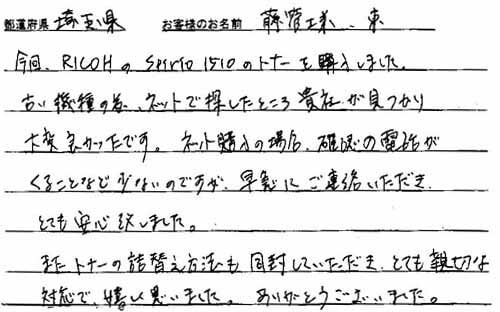 都道府県 埼玉県 お客様のお名前 藤管工業、東
今回、RICOHの Spirio 1510のトナーを購入しました。
古い機種の為、ネットで探したところ貴社が見つかり
大変良かったです。ネット購入の場合、確認の電話が
くることなど少ないのですが、早急にご連絡いただき、
とても安心致しました。
またトナーの詰替え方法も同封していただき、とても親切な
対応で、嬉しく思いました。ありがとうございました。